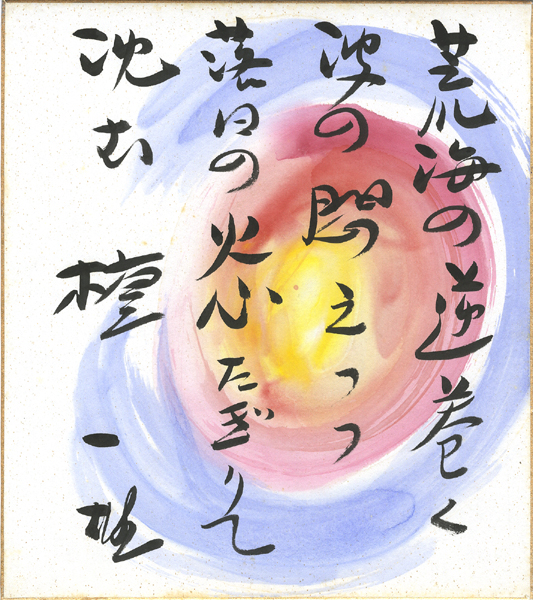 荒海の逆巻く
波の悶えつつ
落日の火心たぎりて
沈む 檀一雄